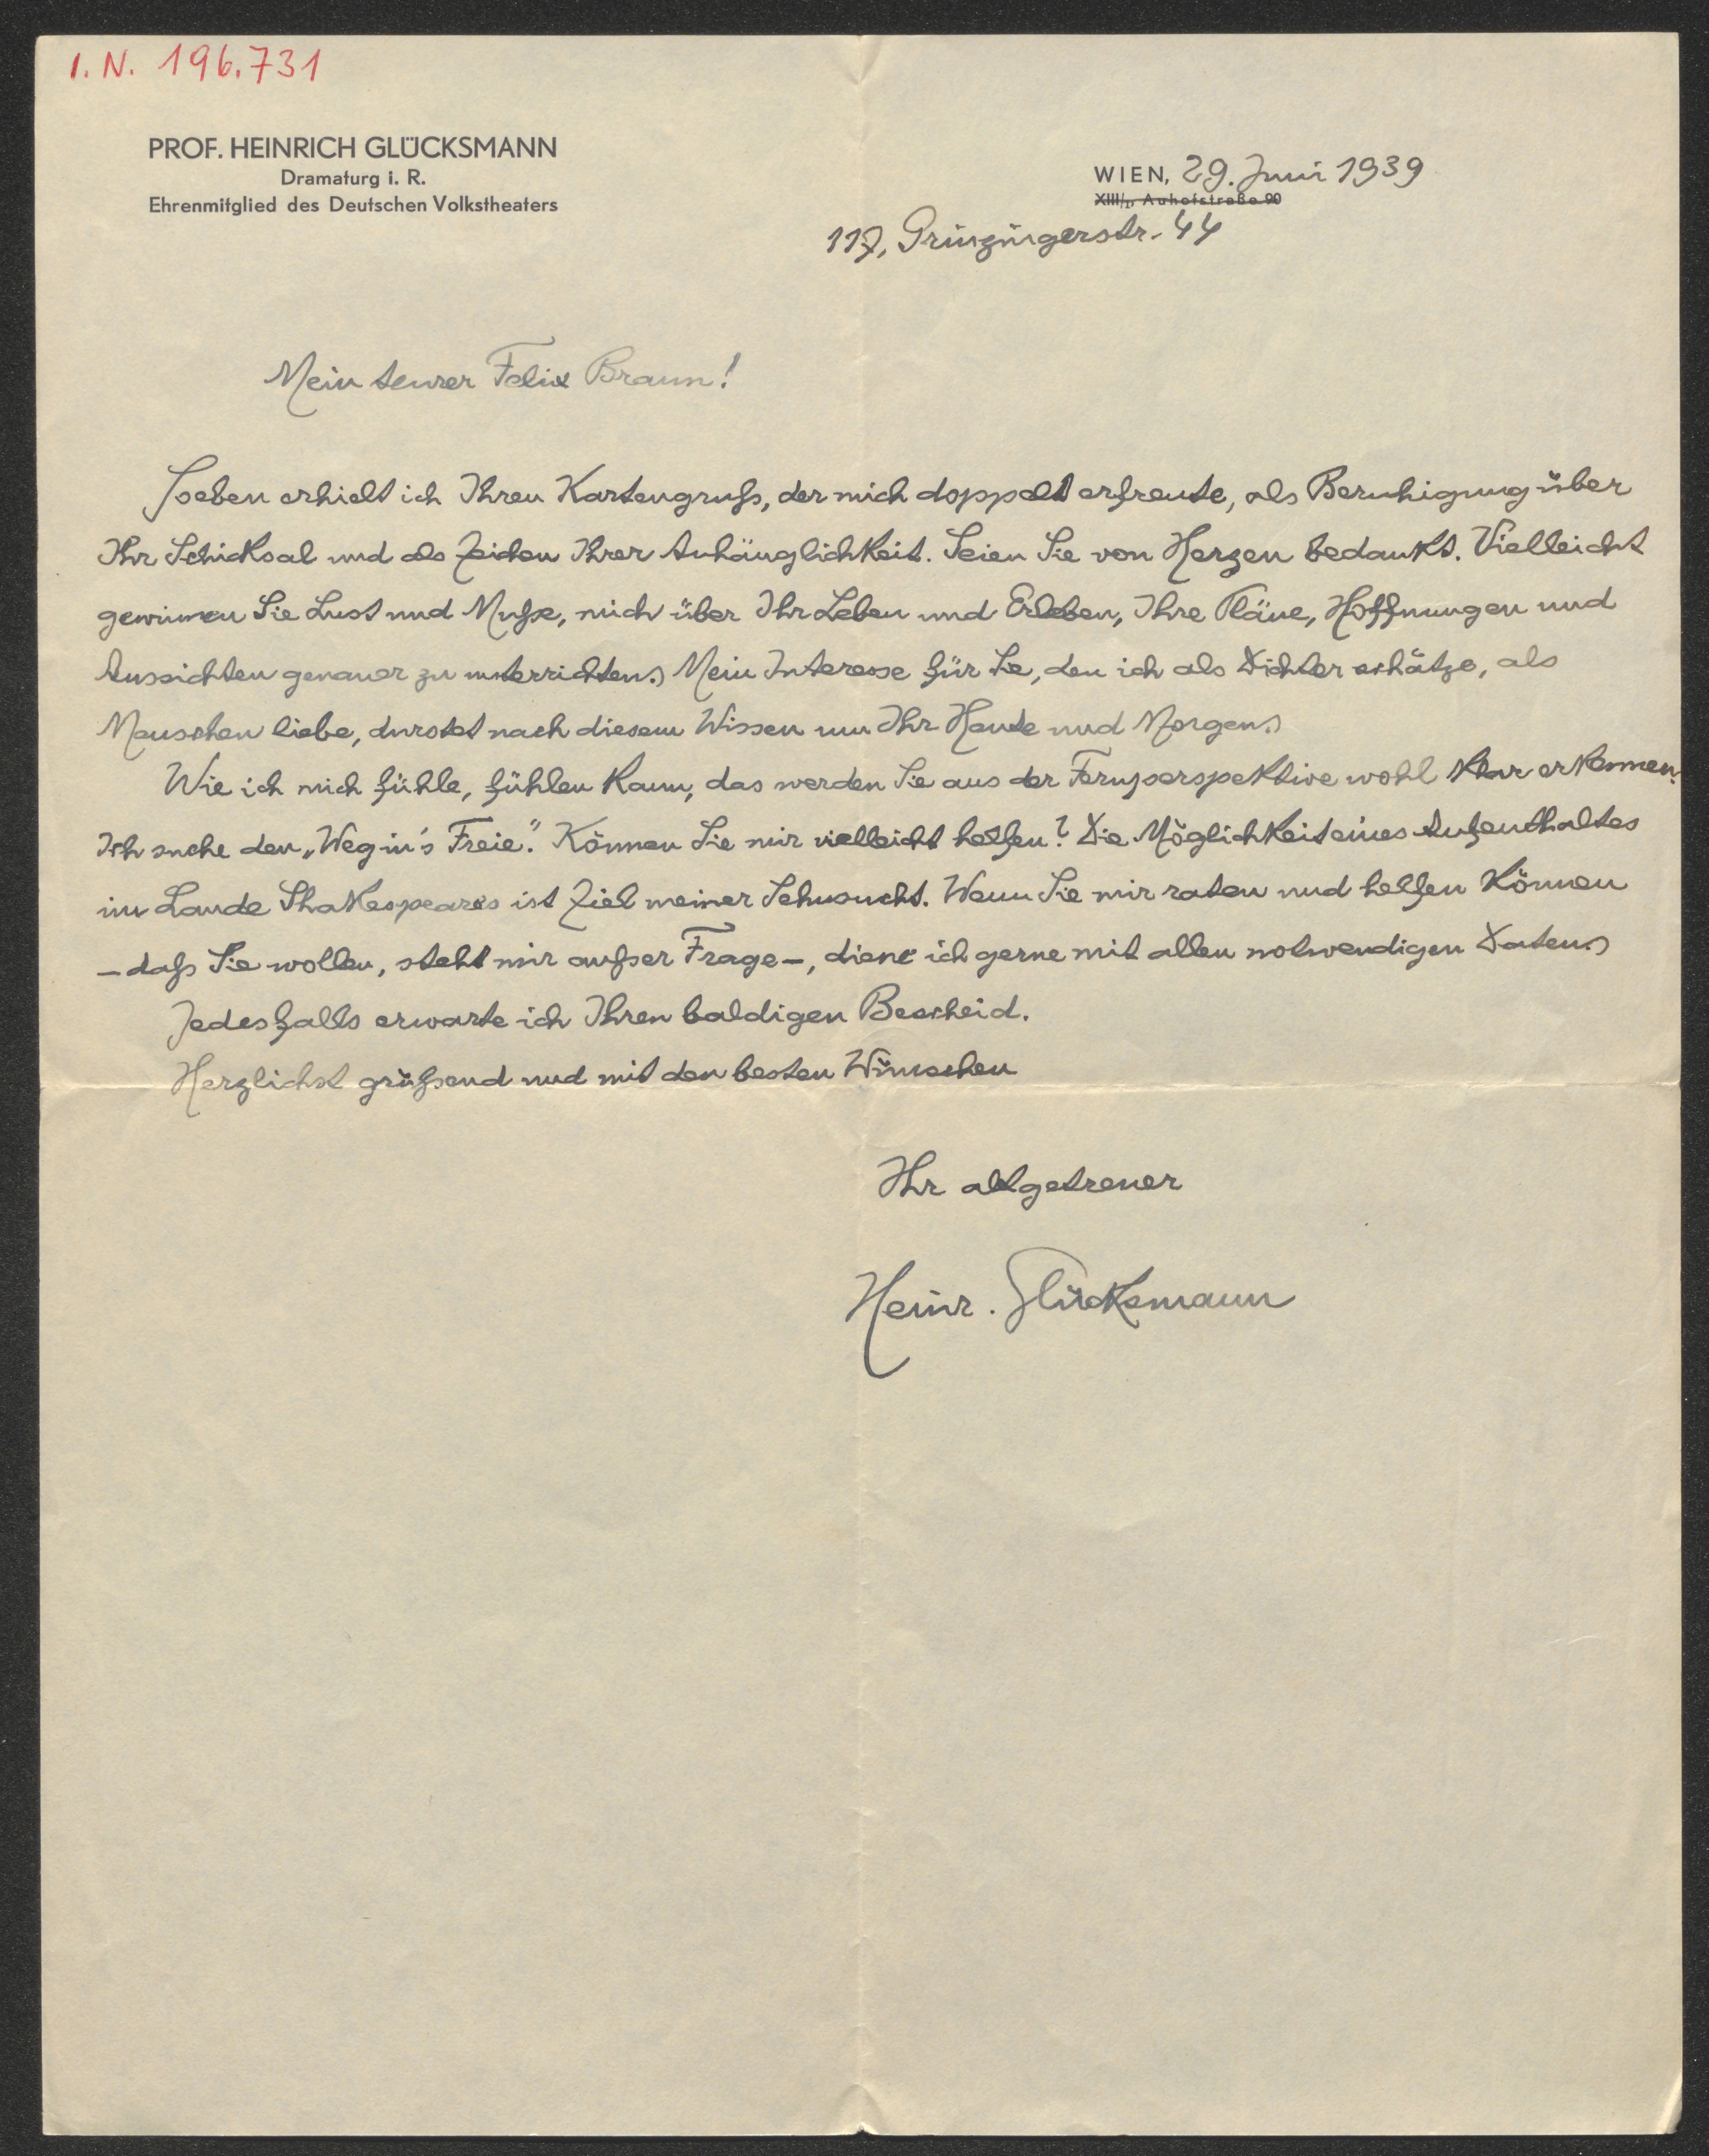 I. N. 196.731
PROF. HEINRICH GLÜCKSMANN
Dramaturg i. R.
Ehrenmitglied des Deutschen Volkstheaters
WIEN, 29. Juni 1939
XIII/1, Auhofstraße 90
117, Grinzingerstr. 44
Mein teurer Felix Braun!
Soeben erhielt ich Ihren Kartengruß, der mich doppelt erfreute, als Beruhigung über
Ihr Schicksal und als Zeichen Ihrer Anhänglichkeit. Seien Sie von Herzen bedankt. Vielleicht
gewinnen Sie Lust und Muße, mich über Ihr Leben und Erleben, Ihre Pläne, Hoffnungen und
Aussichten genauer zu unterrichten. Mein Interesse für Sie, den ich als Dichter schätze, als
Menschen liebe, durstet nach diesem Wissen um Ihr Heute und Morgen.
Wie ich mich fühle, fühlen kann, das werden Sie aus der Fernperspektive wohl klar erkennen.
Ich suche den „Weg in's Freie". Können Sie mir vielleicht helfen? Die Möglichkeit eines Aufenthaltes
im Lande Shakespeares ist Ziel meiner Sehnsucht. Wenn Sie mir raten und helfen können
– daß Sie wollen, steht mir außer Frage –, diene ich gerne mit allen notwendigen Daten.
Jedesfalls erwarte ich Ihren baldigen Bescheid.
Herzlichst grüßend und mit den besten Wünschen
Ihr altgetreuer
Heinr. Glücksmann